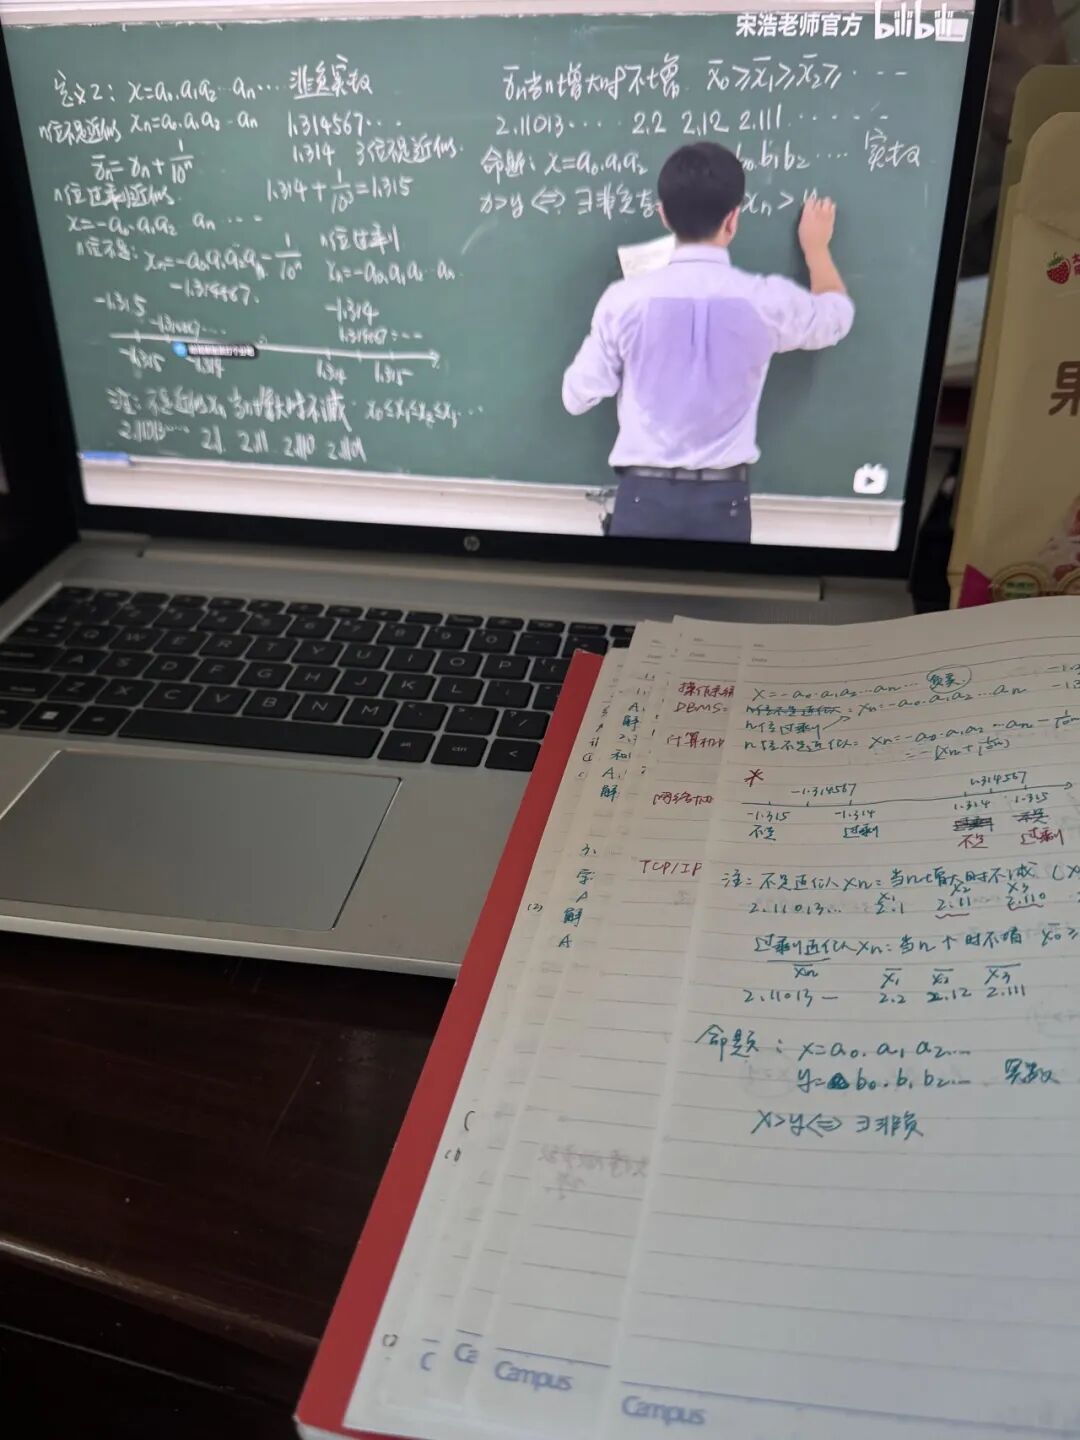 宋浩老师官方 bilibili
定义2: x=a₀.a₁a₂…aₙ… 非负实数
n位不足近似 xₙ=a₀.a₁a₂…aₙ
1.314567…
1.314 3位不足近似.
x̄ₙ=xₙ+1/10ⁿ
n位过剩近似.
1.314+1/10³=1.315
x=-a₀.a₁a₂ aₙ …
n位不足: xₙ=-a₀.a₁a₂aₙ-1/10ⁿ
n位过剩
x̄ₙ=-a₀.a₁a₂…aₙ
-1.314567.
-1.315
-1.314
1.314567…
-1.315 -1.314 1.314 1.315
注: 不足近似xₙ当n增大时不减. x₀≤x₁≤x₂≤x₃…
2.11013… 2.1 2.11 2.110 2.1101
x̄ₙ当n增大时不增. x̄₀≥x̄₁≥x̄₂≥…
2.11013… 2.2 2.12 2.111……
命题: x=a₀.a₁a₂ b₀.b₁b₂…. 实数
x>y⟺∃非负 xₙ>
hp
果
操作系统
DBMS=
计算机
网络
TCP/IP
x=-a₀.a₁a₂…aₙ…
n位过剩 x̄ₙ=-a₀.a₁a₂…aₙ
n位不足近似: xₙ=-a₀.a₁a₂…aₙ-1/10ⁿ
-1.314567 1.314567
-1.315 -1.314 1.314 1.315
不足 过剩 不足 过剩
注: 不足近似xₙ: 当n增大时不减
x₁ x₂ x₃
2.11013… 2.1 2.11 2.110
过剩近似xₙ: 当n个时不增 x̄₀≥
x̄ₙ x̄₁ x̄₂ x̄₃
2.11013— 2.2 2.12 2.111
命题: x=a₀.a₁a₂…
y=b₀.b₁b₂… 实数
x>y⟺∃非负
C Ca Campus Campus